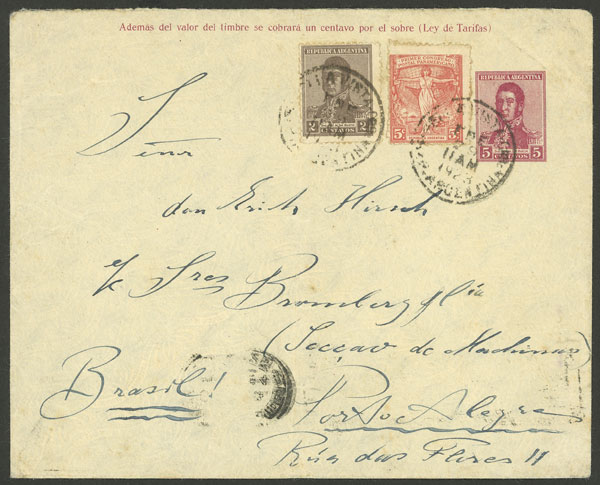 Además del valor del timbre se cobrará un centavo por el sobre (Ley de Tarifas)
REPUBLICA ARGENTINA
2 CENTAVOS 2
5c
REPUBLICA ARGENTINA
5 CENTAVOS 5
11 AM
1923
ARGENTINA
Señor
don Erich Hirsch
c/c Sres Bromberg & Cia
(Secçao de Machinas)
Brasil!
Porto Alegre
Rúa das Flores 11